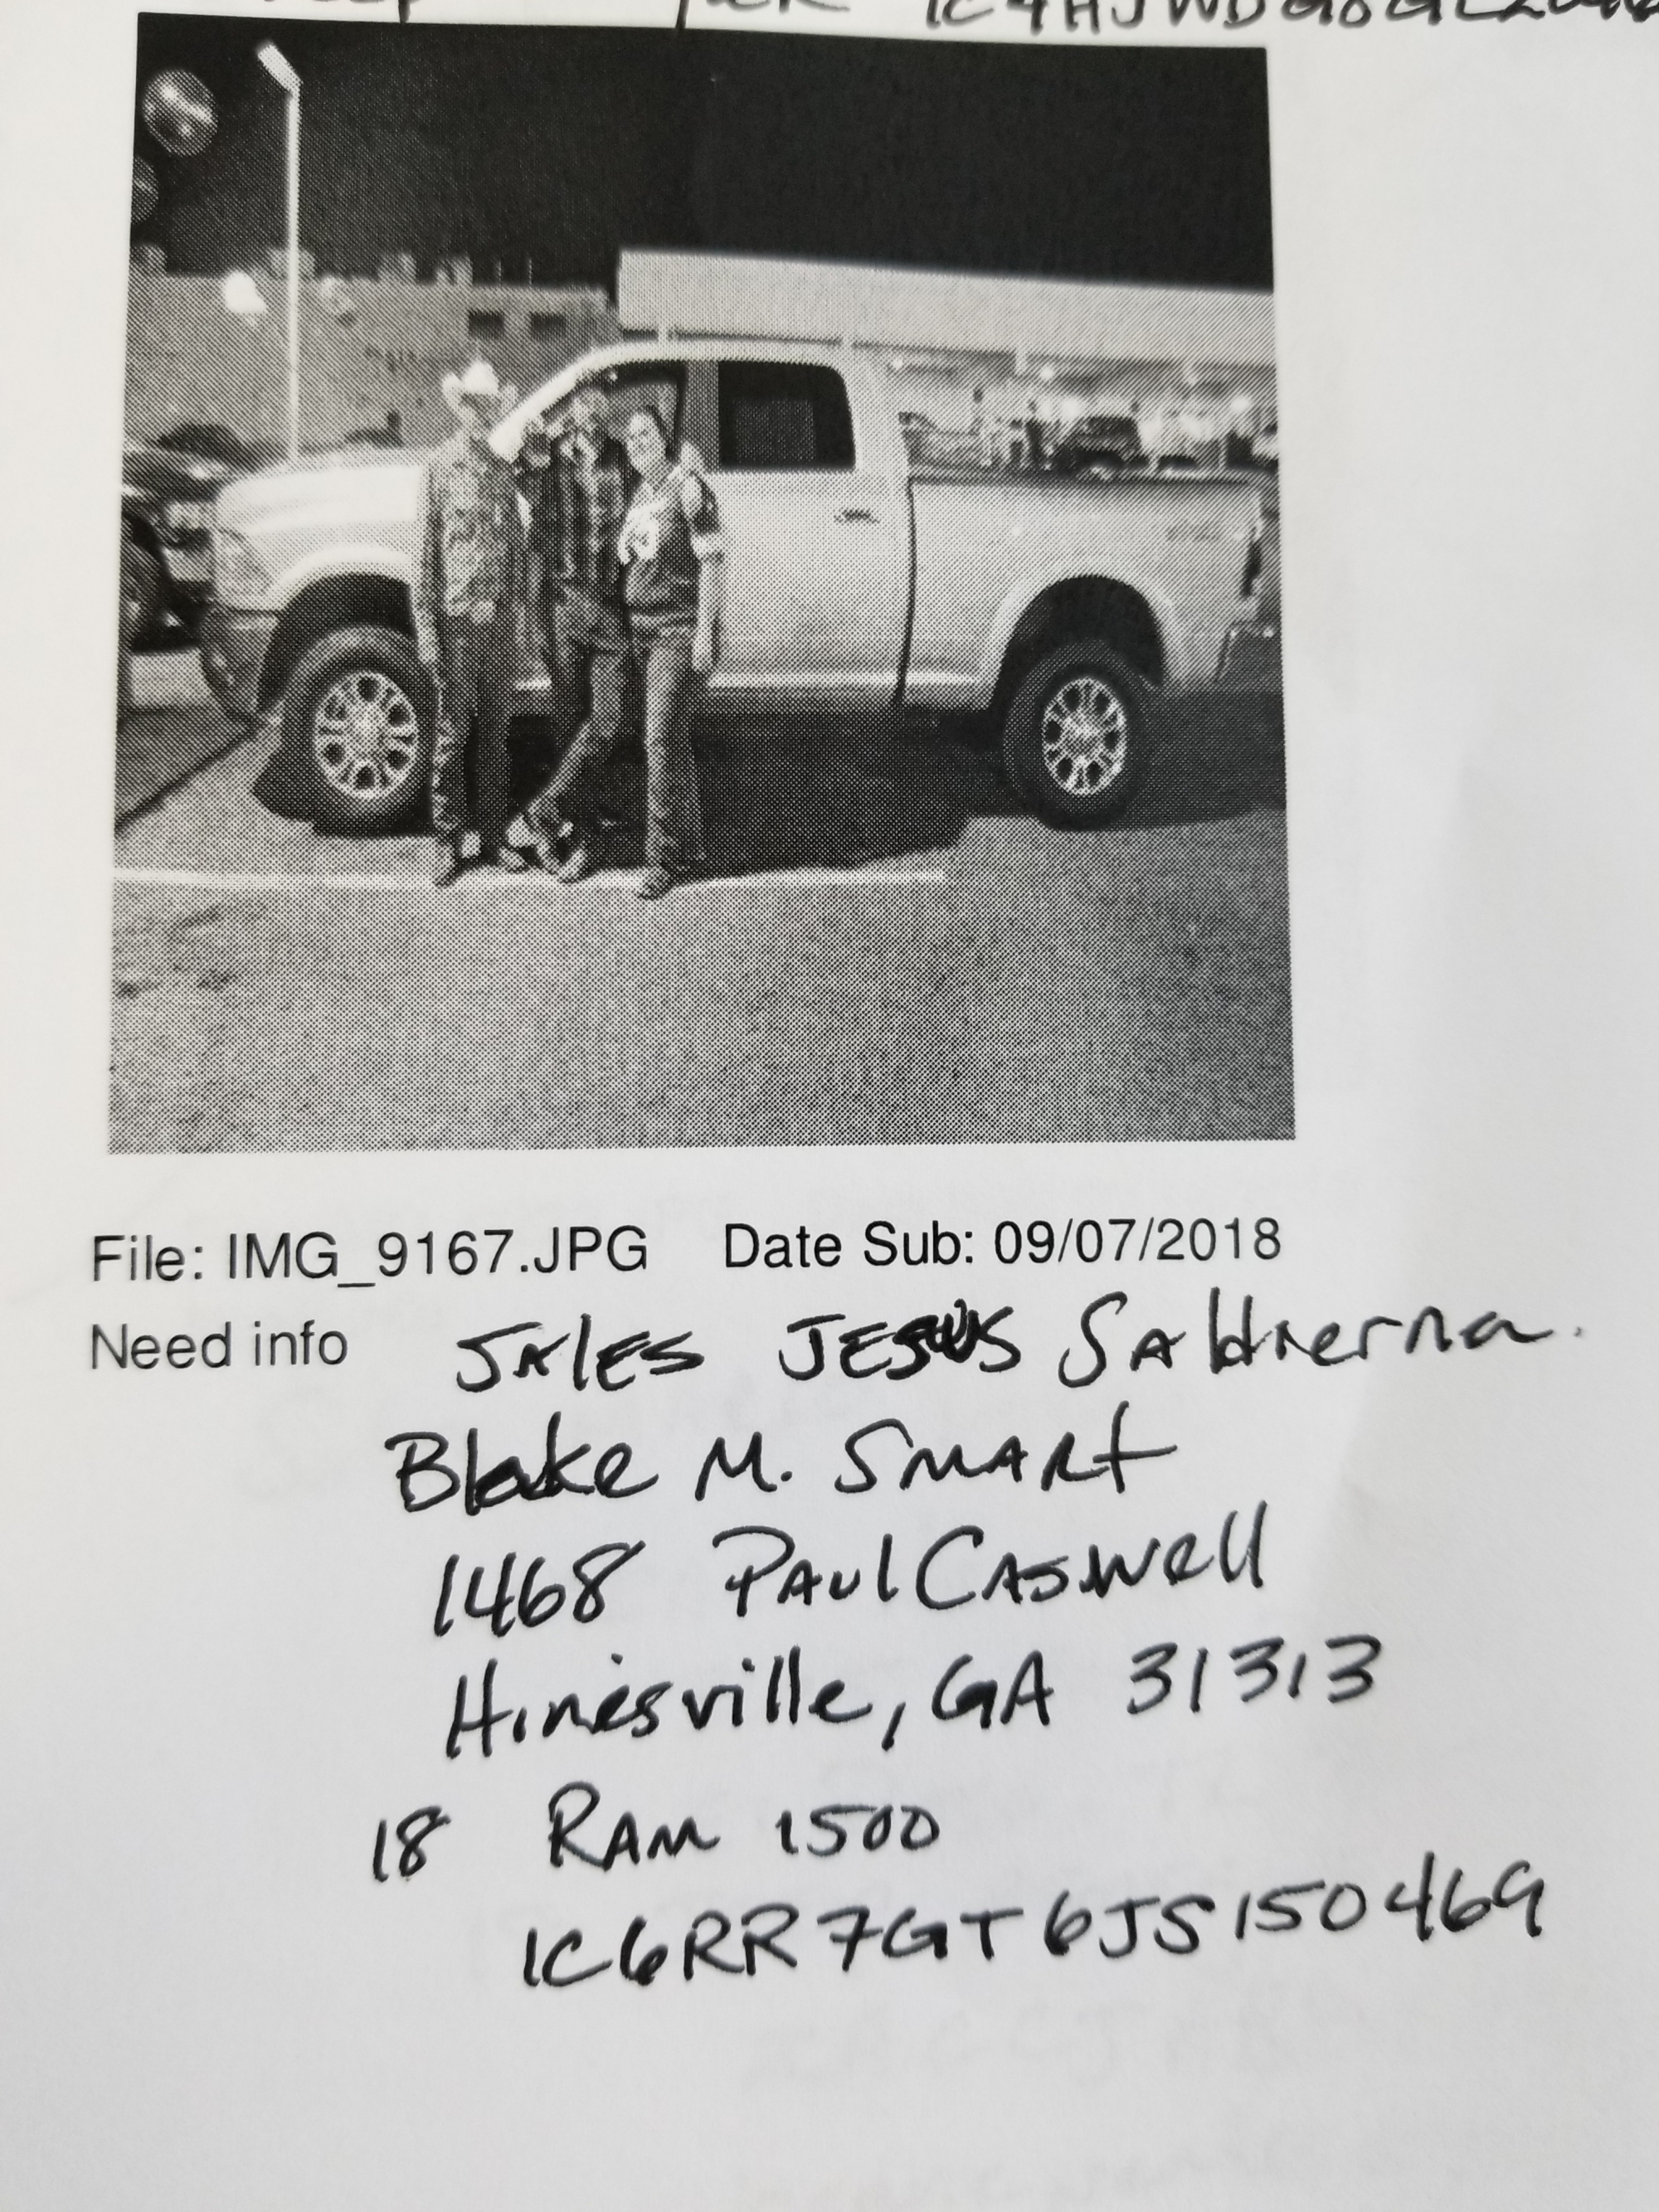 File: IMG_9167.JPG Date Sub: 09/07/2018
Need info SAlES JESUS SAldierna.
Blake M. SMARt
1468 PAul CASwell
Hinesville, GA 31313
18 RAM 1500
1C6RR7GT6JS150469